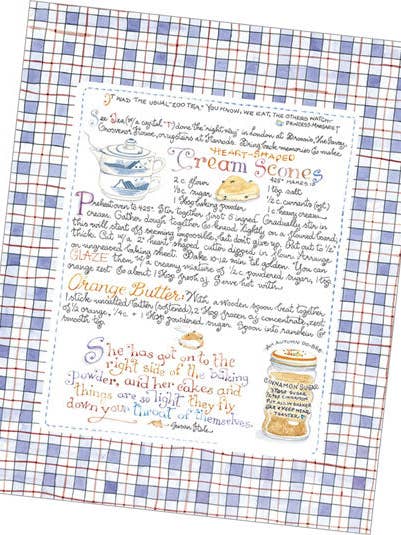 "I HAD THE USUAL "ZOO TEA." YOU KNOW, WE EAT, THE OTHERS WATCH."
PRINCESS MARGARET
Grosvenor House, or oysters at Harrods. Bring back memories to make
HEART-SHAPED
Cream Scones
2 c. flour
425° MAKES
½ c. sugar
1 tsp. salt
1 Tbsp. baking powder
½ c. currants (opt.)
1 c. heavy cream
Preheat oven to 425°. Stir together first 5 ingred. Gradually stir in
cream. Gather dough together & knead lightly on a floured board;
this will start off seeming impossible, but don't give up. Pat out to ½"
thick. Cut w/ a 2" heart-shaped cutter dipped in flour. Arrange
on ungreased baking sheet. Bake 10-12 min. til golden. You can
GLAZE them w/ a creamy mixture of ½ c. powdered sugar, 1 tsp.
orange zest & about 1 Tbsp. fresh o.j. Serve hot with:
Orange Butter: With a wooden spoon beat together
1 stick unsalted butter (softened), 2 Tbsp. frozen o.j. concentrate, zest
of ½ orange, & 1 Tbsp. powdered sugar. Spoon into ramekin &
smooth top.
She has got on to the
right side of the baking
powder, and her cakes and
things are so light they fly
down your throat of themselves.
CINNAMON SUGAR
PUT ALL IN SHAKER
JAR & KEEP NEAR
TOASTER